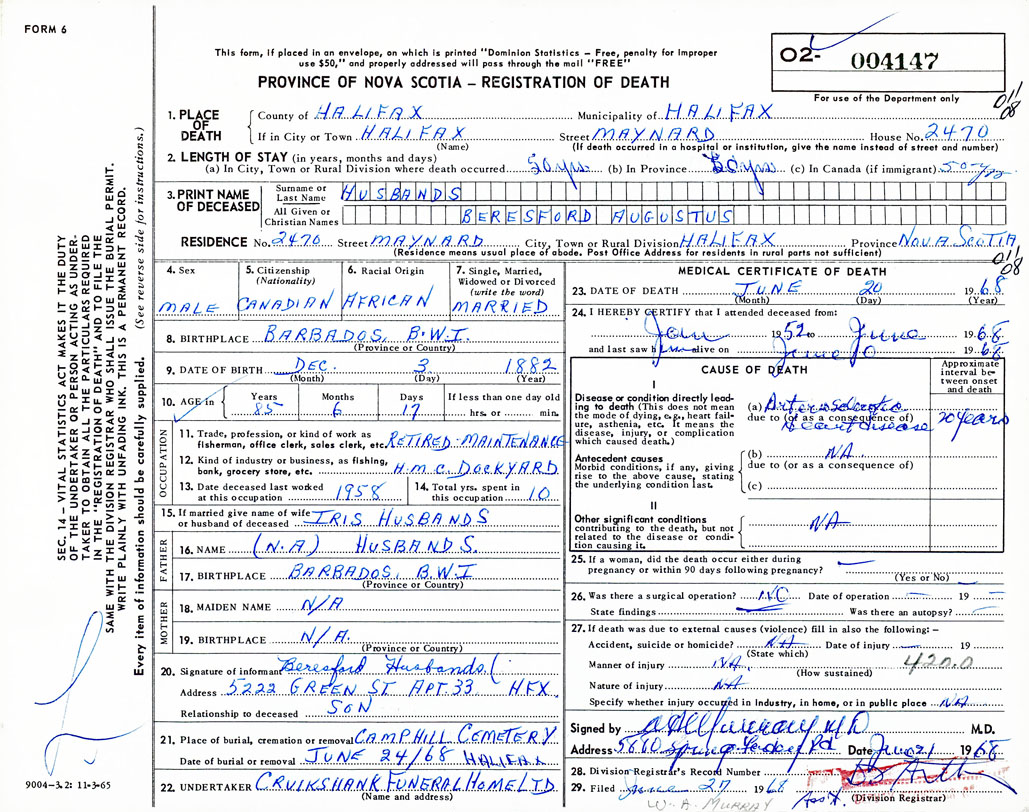 FORM 6
This form, if placed in an envelope, on which is printed "Dominion Statistics – Free, penalty for improper
use $50," and properly addressed will pass through the mail "FREE"
PROVINCE OF NOVA SCOTIA – REGISTRATION OF DEATH
02- 004147
For use of the Department only
011
08
1. PLACE OF DEATH
County of HALIFAX Municipality of HALIFAX
If in City or Town HALIFAX Street MAYNARD House No. 2470
(Name) (If death occurred in a hospital or institution, give the name instead of street and number)
2. LENGTH OF STAY (in years, months and days)
(a) In City, Town or Rural Division where death occurred 50 yrs (b) In Province 50 yrs (c) In Canada (if immigrant) 50 yrs
3. PRINT NAME OF DECEASED
Surname or Last Name HUSBANDS
All Given or Christian Names BERESFORD AUGUSTUS
RESIDENCE No. 2470 Street MAYNARD City, Town or Rural Division HALIFAX Province NOVA SCOTIA
(Residence means usual place of abode. Post Office Address for residents in rural parts not sufficient)
011
08
4. Sex MALE
5. Citizenship (Nationality) CANADIAN
6. Racial Origin AFRICAN
7. Single, Married, Widowed or Divorced (write the word) MARRIED
8. BIRTHPLACE BARBADOS, B.W.I.
(Province or Country)
9. DATE OF BIRTH DEC. 3 1882
(Month) (Day) (Year)
10. AGE in Years Months Days If less than one day old
85 6 17 hrs. or min.
OCCUPATION
11. Trade, profession, or kind of work as
fisherman, office clerk, sales clerk, etc. RETIRED-MAINTENANCE
12. Kind of industry or business, as fishing,
bank, grocery store, etc. H.M.C. DOCKYARD
13. Date deceased last worked at this occupation 1958
14. Total yrs. spent in this occupation 10
15. If married give name of wife or husband of deceased IRIS HUSBANDS
FATHER
16. NAME (N.A.) HUSBANDS.
17. BIRTHPLACE BARBADOS, B.W.I
(Province or Country)
MOTHER
18. MAIDEN NAME N/A
19. BIRTHPLACE N/A.
(Province or Country)
20. Signature of informant Beresford Husbands
Address 5222 GREEN ST. APT. 33 HFX
Relationship to deceased SON
21. Place of burial, cremation or removal CAMPHILL CEMETERY
Date of burial or removal JUNE 24/68 HALIFAX
22. UNDERTAKER CRUIKSHANK FUNERAL HOME LTD.
(Name and address)
MEDICAL CERTIFICATE OF DEATH
23. DATE OF DEATH JUNE 20 1968
(Month) (Day) (Year)
24. I HEREBY CERTIFY that I attended deceased from:
Jan 1952 to June 1968
and last saw him alive on June 1968
CAUSE OF DEATH
Approximate interval between onset and death
I
Disease or condition directly leading to death (This does not mean the mode of dying, e.g., heart failure, asthenia, etc. It means the disease, injury, or complication which caused death.)
(a) Arteriosclerotic
due to (or as a consequence of)
Heart disease 20 years
Antecedent causes
Morbid conditions, if any, giving rise to the above cause, stating the underlying condition last.
(b) NA
due to (or as a consequence of)
(c)
II
Other significant conditions
contributing to the death, but not related to the disease or condition causing it.
NA
25. If a woman, did the death occur either during
pregnancy or within 90 days following pregnancy?
(Yes or No)
26. Was there a surgical operation? NO Date of operation 19
State findings Was there an autopsy?
27. If death was due to external causes (violence) fill in also the following:–
Accident, suicide or homicide? NA Date of injury 19
(State which)
Manner of injury NA 420.0
(How sustained)
Nature of injury NA
Specify whether injury occurred in industry, in home, or in public place NA
Signed by Murray MD M.D.
Address 5880 Spring Garden Rd Date June 21 1968
28. Division Registrar's Record Number
29. Filed June 27 1968
(Division Registrar)
Ass't.
W. A. MURRAY
SEC. 14 – VITAL STATISTICS ACT MAKES IT THE DUTY
OF THE UNDERTAKER OR PERSON ACTING AS UNDERTAKER
TO OBTAIN ALL THE PARTICULARS REQUIRED
IN THE "REGISTRATION OF DEATH" AND TO FILE THE
SAME WITH THE DIVISION REGISTRAR WHO SHALL ISSUE THE BURIAL PERMIT.
WRITE PLAINLY WITH UNFADING INK. THIS IS A PERMANENT RECORD.
Every item of information should be carefully supplied. (See reverse side for instructions.)
9004-3.2: 11-3-65